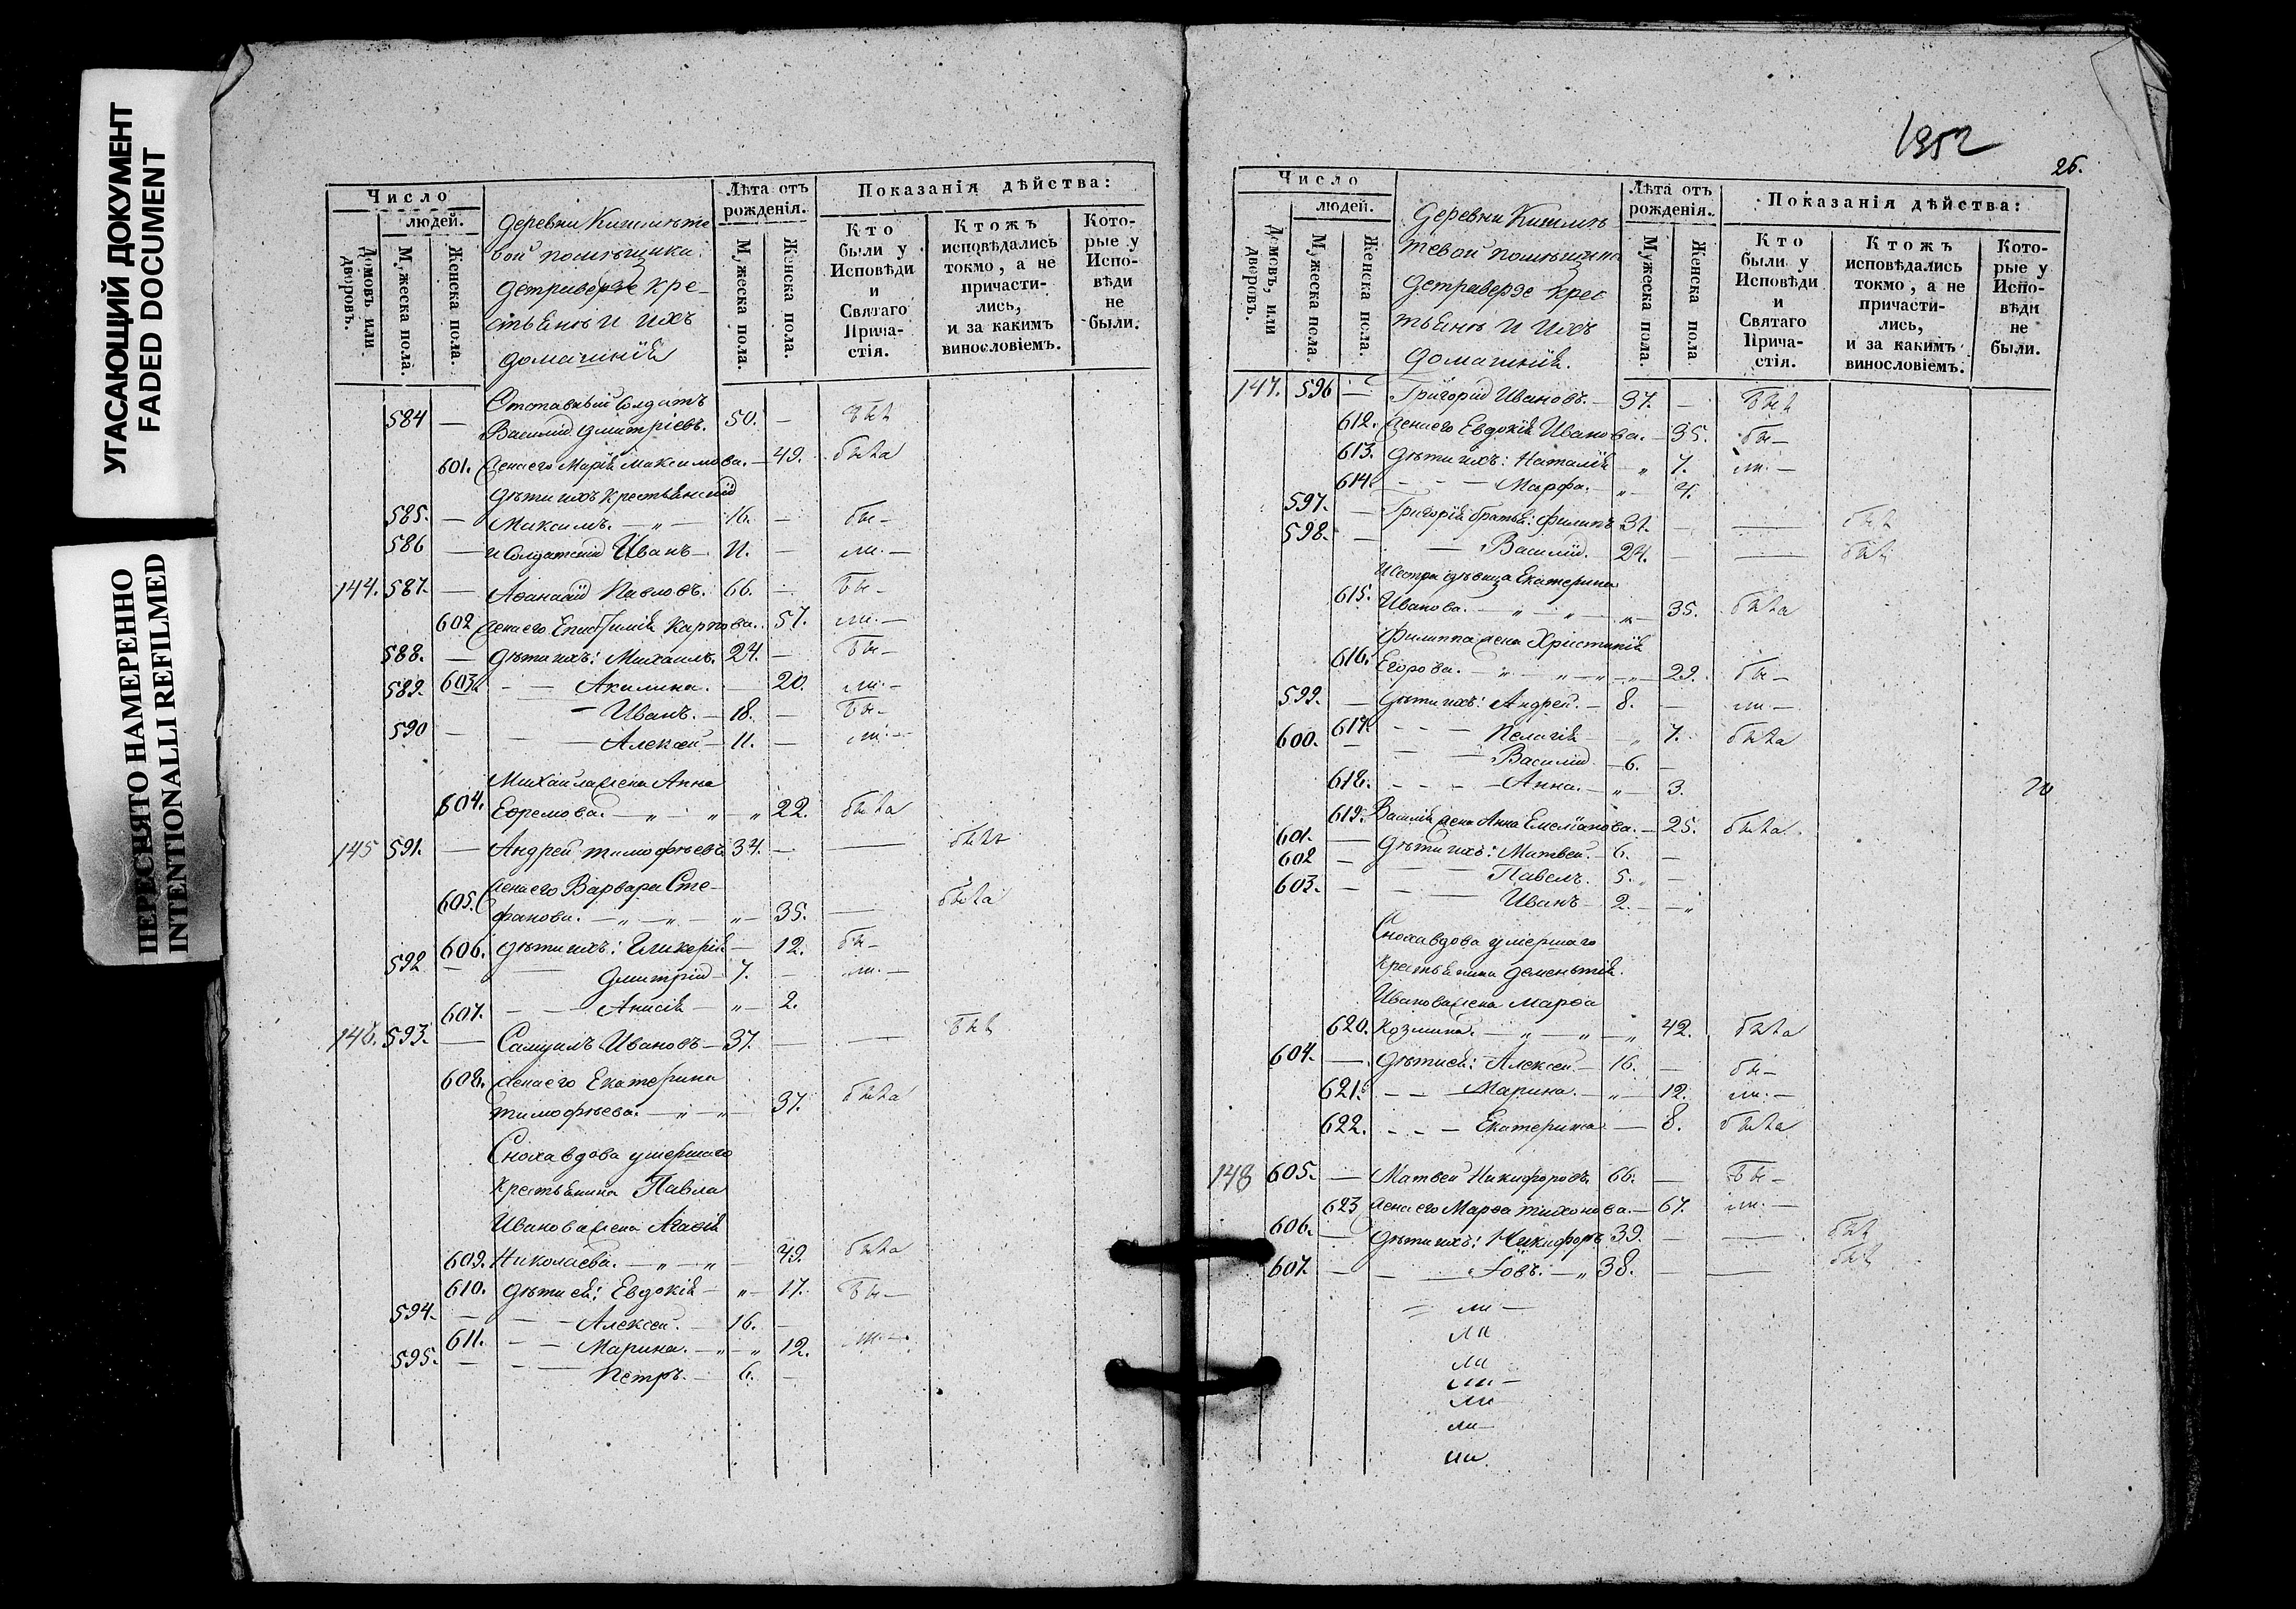 УГАСАЮЩИЙ ДОКУМЕНТ
FADED DOCUMENT
ПЕРЕСНЯТО НАМЕРЕННО
INTENTIONALLI REFILMED
Число
людей.
Домовъ или дворовъ.
Мужеска пола.
Женска пола.
деревни
вой помѣщика
Детраверзе кре-
стьянъ и ихъ
домашнія
Лѣта отъ рожденія.
Мужеска пола.
Женска пола.
Показанія дѣйства:
Кто были у Исповѣди и Святаго Прича-стія.
Ктожъ исповѣдались токмо, а не причасти-лись, и за какимъ винословіемъ.
Кото-рые у Испо-вѣди не были.
Отставный солдатъ
584 — Василій Дмитріевъ. 50. — былъ
601. Жена его Марія Максимова. — 49. была
Дѣти ихъ крестьянскій
585. — Максимъ. — „ — 16. — бы —
586 — и солдатскій Иванъ — 11. — ли. —
144. 587. — Аѳанасій Павловъ. 66. — бы —
602 Жена его Епистимія Карпова. 57. ли. —
588. — Дѣти ихъ: Михаилъ. 24. — бы —
603. — — Акилина. — 20. ли. —
589. — Иванъ. — 18. — бы —
590 — — — Алексей — 11. — ли. —
Михаила жена Анна
604. Ефремова. — „ — „ — „ 22. была
145 591. — Андрей Тимофѣевъ 34. — — былъ
Жена его Варвара Сте-
605. фанова. — „ — „ — „ — 35. — была
606. Дѣти ихъ: Гликерія — 12. бы —
592 — — Дмитрій — 7. — ли. —
607. — — Анисія — „ — 2.
146. 593. — Самуилъ Ивановъ — 37. — — былъ
608. Жена его Екатерина
Тимофѣева. — „ — „ — 37. была
Сноха вдова умершаго
крестьянина Павла
Иванова жена Агафія
609. Николаева. — „ — „ — 49. была
610. Дѣти ея: Евдокія — „ — 17. бы —
594. — — — Алексей. — 16. —
611. — — Марина. — „ — „ 12. ли. —
595. — — — Петръ. — 6. —
1352
26.
Число
людей.
Домовъ, или дворовъ.
Мужеска пола.
Женска пола.
Деревни
тевой помѣщика
Детраверзе крес
тьянъ и ихъ
домашнія.
Лѣта отъ рожденія.
Мужеска пола.
Женска пола
Показанія дѣйства:
Кто были у Исповѣди и Святаго Прича-стія.
Ктожъ исповѣдались токмо, а не причасти-лись, и за какимъ винословіемъ.
Кото-рые у Испо-вѣди не были.
147. 596 — Григорій Ивановъ. — 37. — былъ
612. Жена его Евдокія Иванова. — 35. бы —
613. Дѣти ихъ: Наталія — „ 7. ли. —
614. — — — Марфа. — „ — 4.
597. — Григорія братья: Филипъ 31. — — былъ
598. — — Василій. — 24. — — былъ
Сестра дѣвица Екатерина
615. Иванова. — „ — „ — „ — 35. была
Филиппа жена Христинія
616. Егорова. — „ — „ — „ — 29. бы —
599. — Дѣти ихъ: Андрей. — 8. — ли —
617. — — — Пелагія — „ 7. была
600. — — — Василій — 6. —
618. — — — Анна. — „ — 3.
619. Василія жена Анна Емеліанова. — 25. была.
601. — Дѣти ихъ: Матвей. — 6. —
602 — — Павелъ. 5. —
603. — — Иванъ — 2. — „
Сноха вдова умершаго
крестьянина Дементія
Иванова жена Марѳа
620. Козмина. — „ — „ — „ 42. была
604. — Дѣти ея: Алексей — 16. — бы —
621. — — Марина. — „ — 12. ли. —
622. — — — Екатерина. — 8. была
148 605. — Матвей Никифоровъ. 66. — бы —
623 Жена его Марѳа Тихонова. — 67. ли. —
606. — Дѣти ихъ: Никифоръ 39. — — былъ
607. — — Іовъ. — „ 38. — — былъ